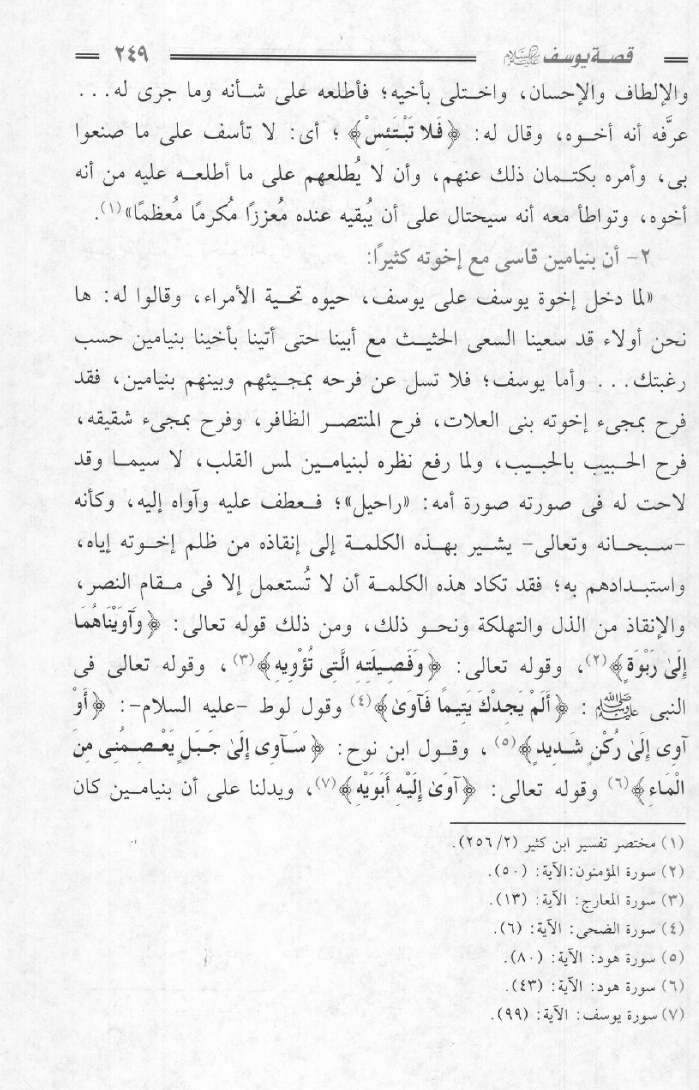 قصة يوسف عليه السلام ٢٤٩
والإلطاف والإحسان، واختلى بأخيه؛ فأطلعه على شأنه وما جرى له...
عرَّفه أنه أخوه، وقال له: ﴿فَلا تَبْتَئِسْ﴾؛ أى: لا تأسف على ما صنعوا
بى، وأمره بكتمان ذلك عنهم، وأن لا يُطلعهم على ما أطلعه عليه من أنه
أخوه، وتواطأ معه أنه سيحتال على أن يُبقيه عنده مُعززًا مُكرمًا مُعظمًا»(١).
٢- أن بنيامين قاسى مع إخوته كثيرًا:
«لما دخل إخوة يوسف على يوسف، حيوه تحية الأمراء، وقالوا له: ها
نحن أولاء قد سعينا السعى الحثيث مع أبينا حتى أتينا بأخينا بنيامين حسب
رغبتك... وأما يوسف؛ فلا تسل عن فرحه بمجيئهم وبينهم بنيامين، فقد
فرح بمجىء إخوته بنى العلات، فرح المنتصر الظافر، وفرح بمجىء شقيقه،
فرح الحبيب بالحبيب، ولما رفع نظره لبنيامين لمس القلب، لا سيما وقد
لاحت له فى صورته صورة أمه: «راحيل»؛ فعطف عليه وآواه إليه، وكأنه
-سبحانه وتعالى- يشير بهذه الكلمة إلى إنقاذه من ظلم إخوته إياه،
واستبدادهم به؛ فقد تكاد هذه الكلمة أن لا تُستعمل إلا فى مقام النصر،
والإنقاذ من الذل والتهلكة ونحو ذلك، ومن ذلك قوله تعالى: ﴿وَآوَيْنَاهُمَا
إِلَىٰ رَبْوَةٍ﴾(٢)، وقوله تعالى: ﴿وَفَصِيلَتِهِ الَّتِى تُؤْوِيهِ﴾(٣)، وقوله تعالى فى
النبى ﷺ: ﴿أَلَمْ يَجِدْكَ يَتِيمًا فَآوَىٰ﴾(٤) وقول لوط -عليه السلام-: ﴿أَوْ
آوِى إِلَىٰ رُكْنٍ شَدِيدٍ﴾(٥)، وقول ابن نوح: ﴿سَآوِى إِلَىٰ جَبَلٍ يَعْصِمُنِى مِنَ
الْمَاءِ﴾(٦) وقوله تعالى: ﴿آوَىٰ إِلَيْهِ أَبَوَيْهِ﴾(٧)، ويدلنا على أن بنيامين كان
(١) مختصر تفسير ابن كثير (٢/ ٢٥٦).
(٢) سورة المؤمنون:الآية: (٥٠).
(٣) سورة المعارج: الآية: (١٣).
(٤) سورة الضحى: الآية: (٦).
(٥) سورة هود: الآية: (٨٠).
(٦) سورة هود: الآية: (٤٣).
(٧) سورة يوسف: الآية: (٩٩).